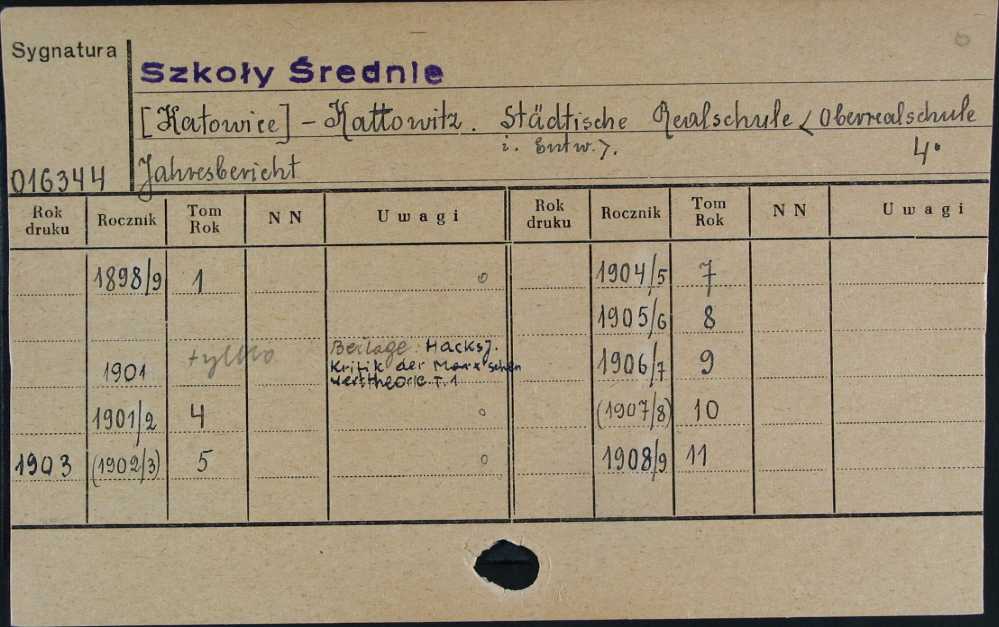 Sygnatura
Szkoły Średnie
[Katowice] - Kattowitz. Städtische Realschule < Oberrealschule
i. Entw. >.
4°
016344 Jahresbericht
Rok druku Rocznik Tom Rok NN Uwagi Rok druku Rocznik Tom Rok NN Uwagi
1898/9 1 o 1904/5 7
1905/6 8
1901 tylko Beilage: Hacks J. 1906/7 9
Kritik der Marxschen
Werttheorie T. 1
1901/2 4 o (1907/8) 10
1903 (1902/3) 5 o 1908/9 11